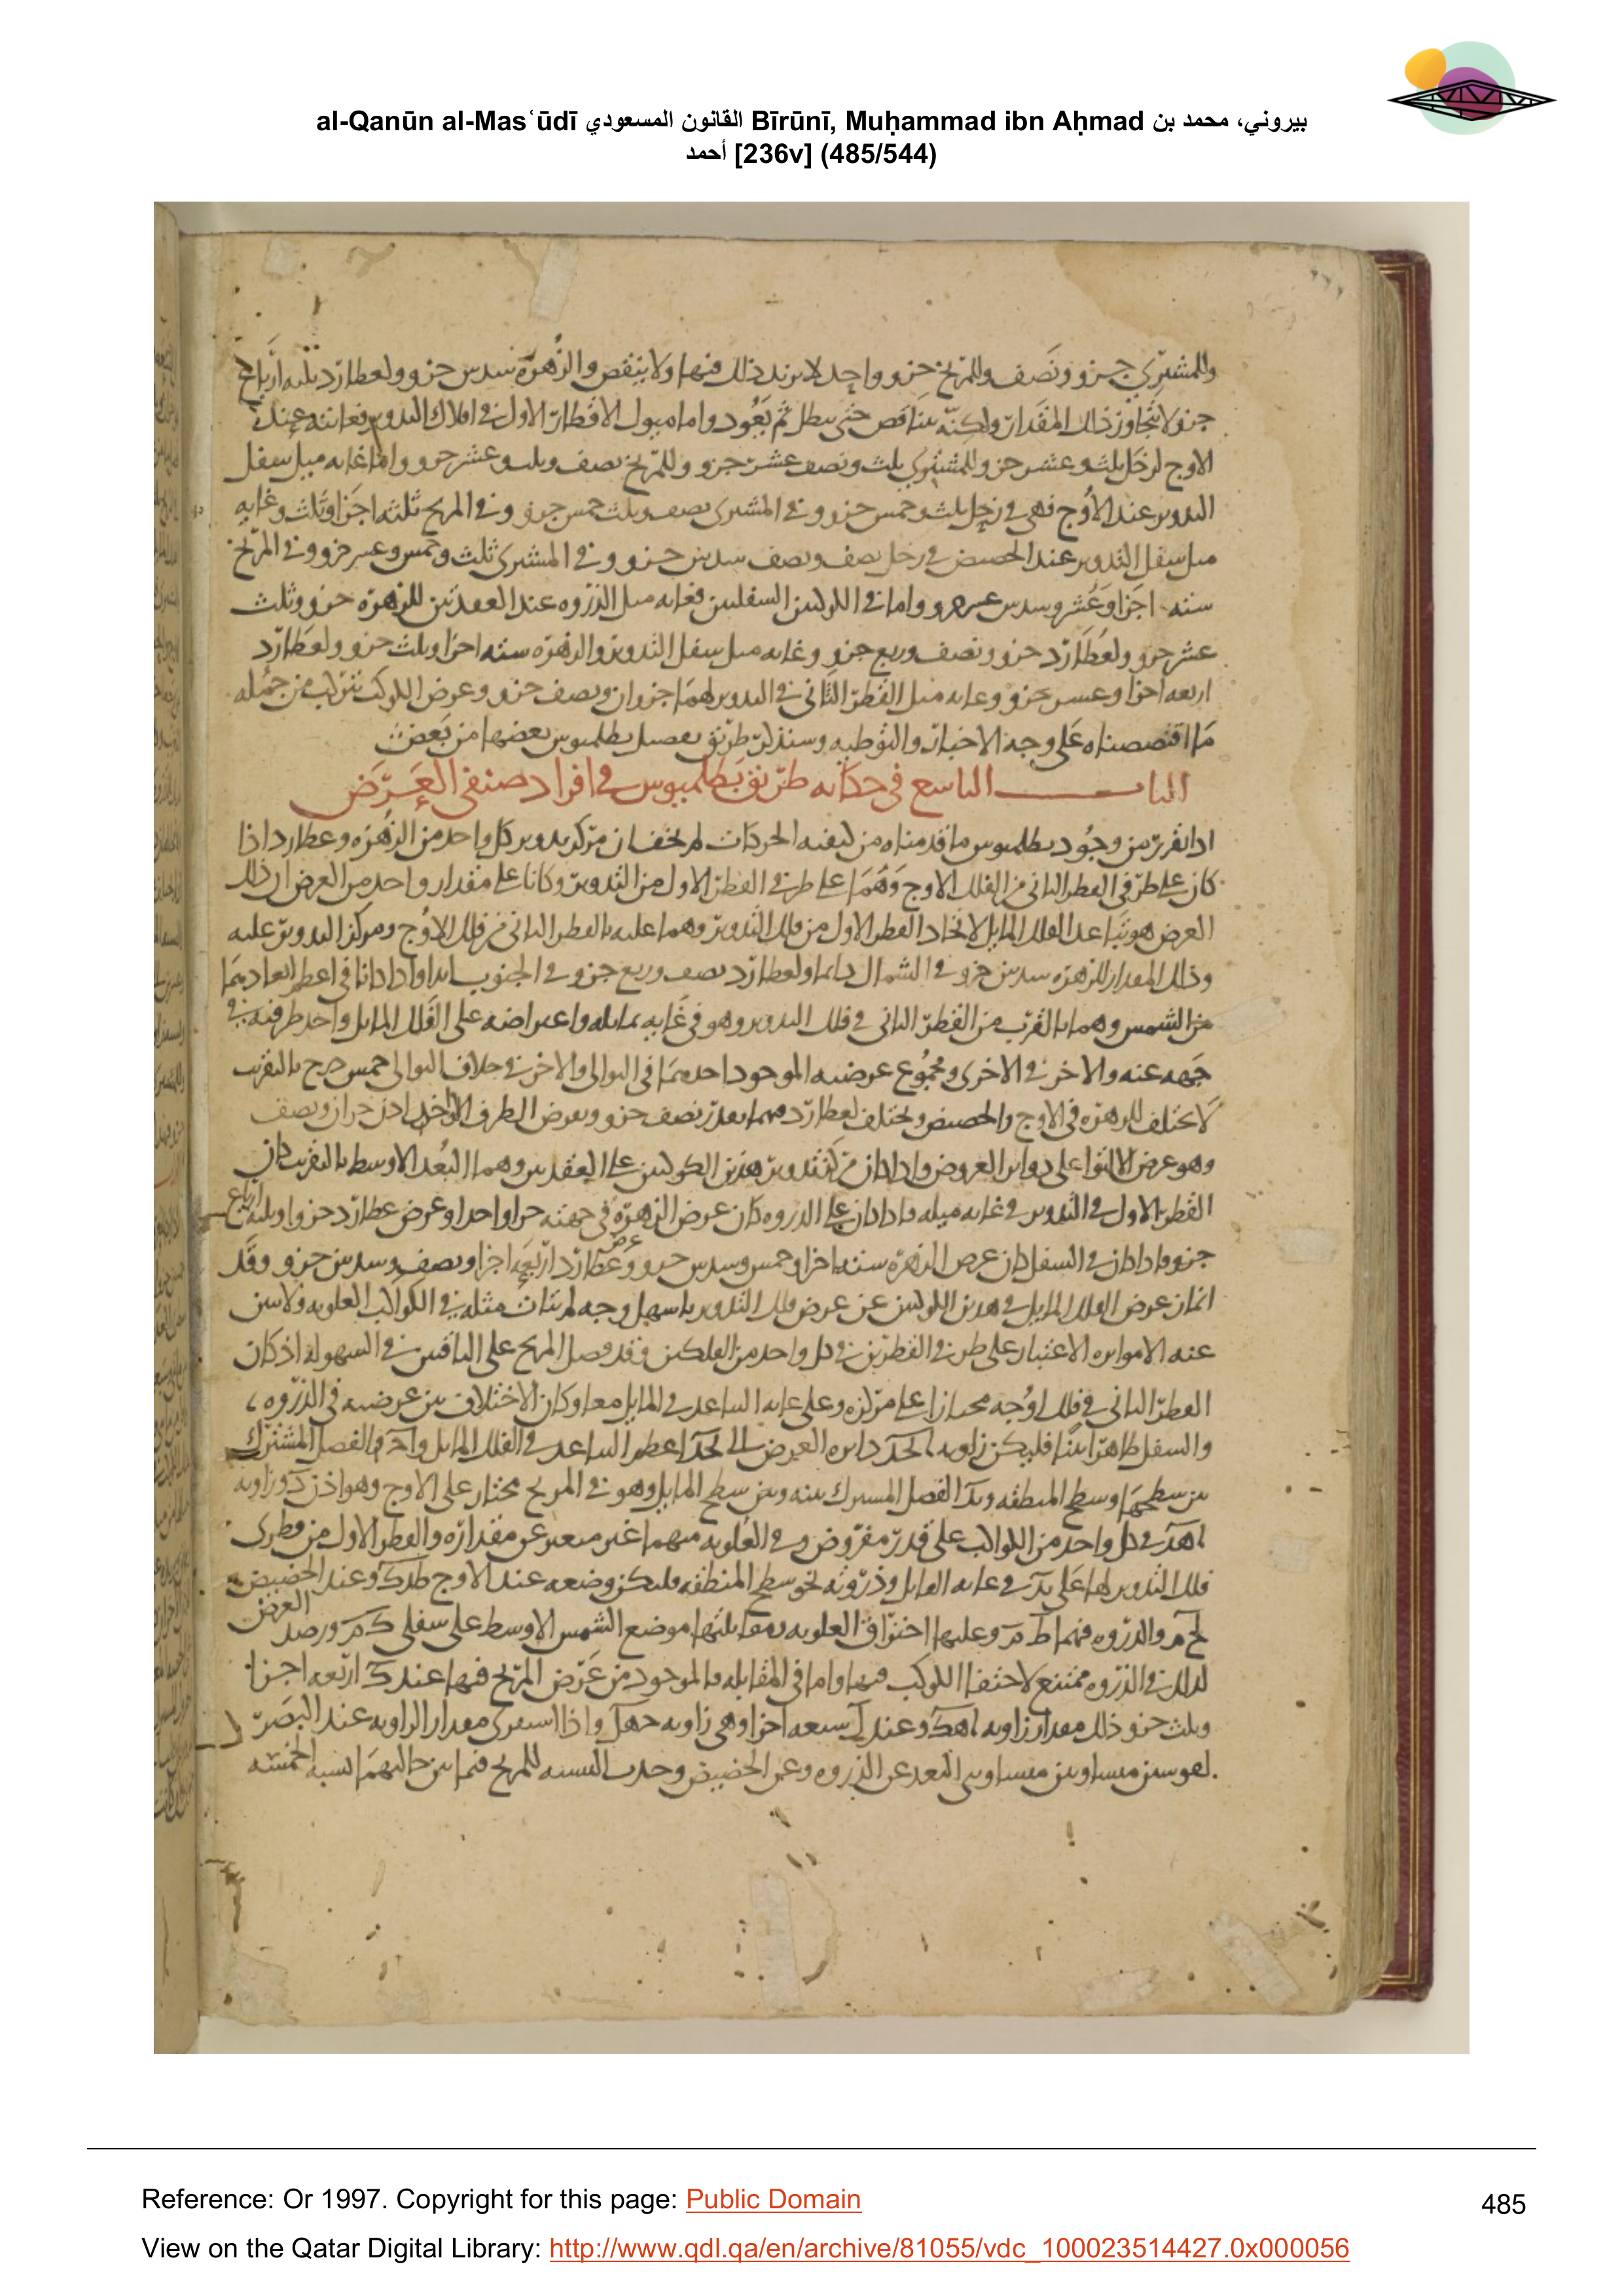 al-Qanūn al-Masʿūdī القانون المسعودي Bīrūnī, Muḥammad ibn Aḥmad بيروني، محمد بن
أحمد [236v] (485/544)
وللمشتري جزو ونصف وللمريخ جزو واحد لا يزيد ذلك فيها ولا ينقص وللزهرة سدس جزو ولعطارد ثلثة ارباع
جزو لا يتجاوز ذلك المقدار ولكنه يتناقص حتى يبطل ثم يعود واما ميول الاقطار الاول في افلاك التدوير فغايته عند
الاوج لزحل ثلث وعشر جزو وللمشتري ثلث ونصف عشر جزو وللمريخ نصف وثلث وعشر جزو واما غايه ميل سفل
التدوير عند الاوج فهي في زحل ثلث وخمس جزو وفي المشتري نصف وثلث خمس جزو وفي المريخ ثلثه اجزا وثلث وغايه
ميل سفل التدوير عند الحضيض في زحل نصف ونصف سدس جزو وفي المشتري ثلث وخمس وعشر جزو وفي المريخ
سته اجزا وعشر وسدس عشر جزو واما في الكوكبين السفليين فغايه ميل الذروه عند العقدتين للزهرة جزو وثلث
عشر جزو ولعطارد جزو ونصف وربع جزو وغايه ميل سفل التدوير والزهره سته اجزا وثلث جزو ولعطارد
اربعه اجزا وعشر جزو وغايه ميل القطر الثاني في التدوير لهما جزوان ونصف جزو وعرض الكوكب يتركب من جمله
ما اقتصصناه على وجه الاخبار والتوطيه وسنذكر طريق تفصيل بطلميوس بعضها من بعض
الباب التاسع في حكايه طريق بطلميوس في افراد صنفي العرض
اذا تقرر من وجود بطلميوس ما قدمناه من كيفيه الحركات لم يخف ان مركز تدوير كل واحد من الزهره وعطارد اذا
كان على طرفي القطر الثاني من الفلك الاوج وهما على طرفي القطر الاول من التدوير وكانا على مقدار واحد من العرض ان ذلك
العرض هو تباعد الفلك المايل لاتحاد القطر الاول من فلك التدوير وهما عليه بالقطر الثاني من فلك الاوج ومركز التدوير عليه
وذلك المقدار للزهره سدس جزو في الشمال دايما ولعطارد نصف وربع جزو في الجنوب ابدا واذا كانا في اعظم ابعادهما
من الشمس وهما بالقرب من القطر الثاني في فلك التدوير وهو في غايه تمايله واعتراضه على الفلك المايل واحد طرفيه في
جهه عنه والاخر في الاخرى ومجموع عرضيه الموجود احدهما في التوالي والاخر في خلاف التوالي خمس درج بالتقريب
لا يختلف للزهره في الاوج والحضيض ويختلف لعطارد فيهما بقدر نصف جزو وعرض الطرف الواحد اذن جزان ونصف
وهو عرض الالتوا على دواير العروض واذا كان مركز تدوير هذين الكوكبين على العقدتين وهما البعد الاوسط بالتقريب كان
القطر الاول في التدوير في غايه ميله فاذا كان على الذروه كان عرض الزهره في جهته جزا واحدا وعرض عطارد جزوا وثلثه ارباع
جزو واذا كان في السفل كان عرض الزهره سته اجزا وخمس وسدس جزو وعرض عطارد اربعه اجزا ونصف وسدس جزو وقد
امتاز عرض الفلك المايل في هذين الكوكبين عن عرض فلك التدوير باسهل وجه لم يتات مثله في الكواكب العلويه
عند الاعتبار على طرفي القطرين في كل واحد من الفلكين فقد فصل المريخ على الباقيين في السهوله اذ كان
القطر الثاني في فلك اوجه مجتازا على مركزه وعلى غايه التباعد في المايل معا وكان الاختلاف بين عرضيه في الذروه
والسفل ظاهرا بينا فليكن زاويه دايره العرض اعظم التباعد في الفلك المايل الفصل المشترك
بين سطحها وسطح المنطقه الفصل المشترك بينه وبين سطح المايل وهو في المريخ مجتاز على الاوج وهو اذن وزاويه
في كل واحد من الكواكب على قدر مفروض وفي العلويه منهما غير متعين عن مقداره والقطر الاول من قطري
فلك التدوير لها على في غايه المايل وذروته نحو سطح المنطقه فليكن وضعه عند الاوج وعند الحضيض
والذروه فيهما وعليها احتراق العلويه ومقابلتها موضع الشمس الاوسط على سفلي ورصد العرض
لذلك في الذروه ممتنع لاختفا الكوكب فيها واما في المقابله فالموجود من عرض المريخ فيها عند اربعه اجزا
وثلث جزو وذلك مقدار زاويه وعند سبعه اجزا وهي زاويه واذا استقرى مقدار الزاويه عند البصر
لقوسين متساويتين متساويتي البعد عن الذروه وعن الحضيض وجدت النسبه للمريخ فيما بين حاليهما نسبه الخمسه
Reference: Or 1997. Copyright for this page: Public Domain
485
View on the Qatar Digital Library: http://www.qdl.qa/en/archive/81055/vdc_100023514427.0x000056